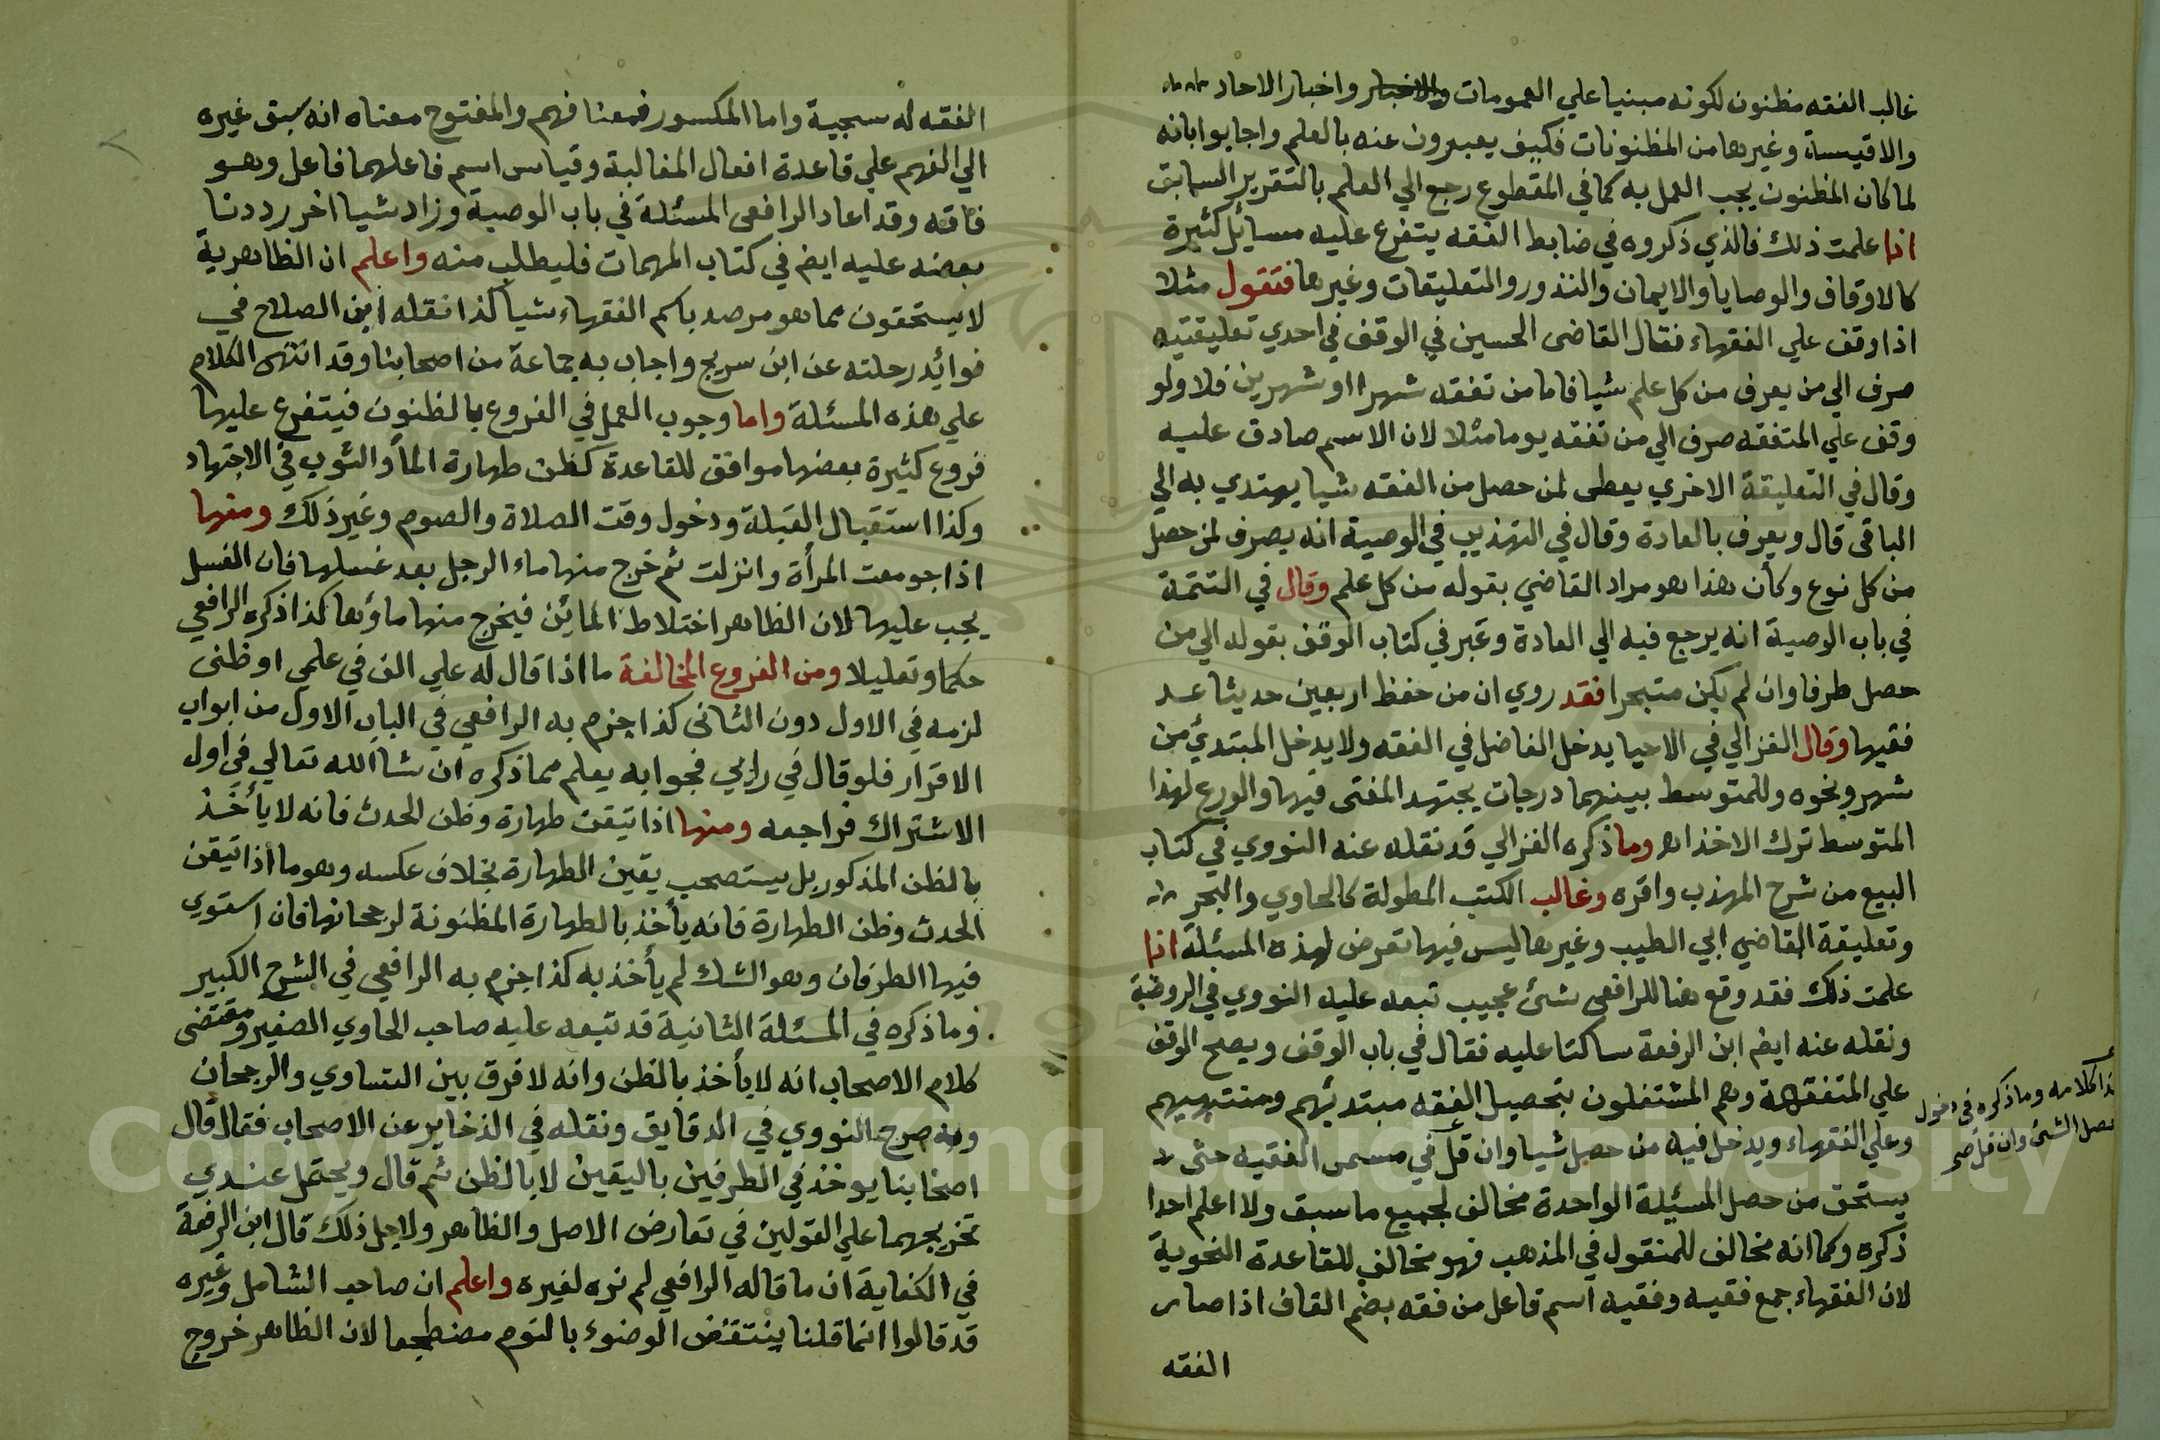 غالب الفقه مظنون لكونه مبنيا علي العمومات والاخبار واخبار الاحاد
والاقيسة وغيرها من المظنونات فكيف يعبرون عنه بالعلم واجابوا بانه
لما كان المظنون يجب العمل به كما في المقطوع رجع الي العلم بالتقرير السابق
اذا علمت ذلك فالذي ذكروه في ضابط الفقه يتفرع عليه مسايل كثيرة
كالاوقاف والوصايا والايمان والنذور والتعليقات وغيرها فتقول مثلا
اذا وقف علي الفقهاء فقال القاضى الحسين في الوقف في احدي تعليقتيه
صرف الي من يعرف من كل علم شيا فاما من تفقه شهرا او شهرين فلا ولو
وقف علي المتفقه صرف الي من تفقه يوما مثلا لان الاسم صادق عليه
وقال في التعليقة الاخري يعطى لمن حصل من الفقه شيا يهتدي به الي
الباقي قال ويعرف بالعادة وقال في التهذيب في الوصية انه يصرف لمن حصل
من كل نوع وكأن هذا هو مراد القاضي بقوله من كل علم وقال في التتمة
في باب الوصية انه يرجع فيه الي العادة وعبر في كتاب الوقف بقوله الي من
حصل طرفا وان لم يكن متبحرا فقد روي ان من حفظ اربعين حديثا عد
فقيها وقال الغزالي في الاحيا يدخل الفاضل في الفقه ولا يدخل المبتدئ من
شهر ونحوه وللمتوسط بينهما درجات يجتهد المفتى فيها والورع لهذا
المتوسط ترك الاخذ اه وما ذكره الغزالي قد نقله عنه النووي في كتاب
البيع من شرح المهذب واقره وغالب الكتب المطولة كالحاوي والبحر
وتعليقة القاضي ابي الطيب وغيرها ليس فيها تعرض لهذه المسئلة اذا
علمت ذلك فقد وقع هنا للرافعي شئ عجيب تبعه عليه النووي في الروضة
ونقله عنه ايضا ابن الرفعة ساكتا عليه فقال في باب الوقف ويصح الوقف
علي المتفقهة وهم المشتغلون بتحصيل الفقه مبتديهم ومنتهيهم
وعلي الفقهاء ويدخل فيه من حصل شيا وان قل في مسمى الفقيه حتى
يستحق من حصل المسئلة الواحدة مخالف لجميع ما سبق ولا اعلم احدا
ذكره وكما انه مخالف للمنقول في المذهب فهو مخالف للقاعدة النحوية
لان الفقهاء جمع فقيه وفقيه اسم فاعل من فقه بضم القاف اذا صار
الفقه
هذا كلامه وما ذكره في دخول
محصل الشئ وان قل
الفقه له سجية واما المكسور فمعنا فهم والمفتوح معناه انه سبق غيره
الي الفهم علي قاعدة افعال المغالبة وقياس اسم فاعلهما فاعل وهو
فاقه وقد اعاد الرافعى المسئلة في باب الوصية وزاد شيا اخر رددنا
بعضه عليه ايضا في كتاب المهمات فليطلب منه واعلم ان الظاهرية
لا يستحقون مما هو مرصد باسم الفقهاء شيا كذا نقله ابن الصلاح في
فوائد رحلته عن ابن سريج واجاب به جماعة من اصحابنا وقد انتهى الكلام
علي هذه المسئلة واما وجوب العمل في الفروع بالظنون فيتفرع عليها
فروع كثيرة بعضها موافق للقاعدة كظن طهارة الما والثوب في الاجتهاد
وكذا استقبال القبلة ودخول وقت الصلاة والصوم وغير ذلك ومنها
اذا جومعت المرأة وانزلت ثم خرج منها ماء الرجل بعد غسلها فان الغسل
يجب عليها لان الظاهر اختلاط المائين فيخرج منها ماؤها كذا ذكره الرافعي
حكما وتعليلا ومن الفروع المخالفة ما اذا قال له علي الف في علمي او ظنى
لزمه في الاول دون الثانى كذا جزم به الرافعي في الباب الاول من ابواب
الاقرار فلو قال في رايي فجوابه يعلم مما ذكره ان شا الله تعالي في اول
الاشتراك فراجعه ومنها اذا تيقن طهارة وظن الحدث فانه لا يأخذ
بالظن المذكور بل يستصحب يقين الطهارة بخلاف عكسه وهو ما اذا تيقن
الحدث وظن الطهارة فانه يأخذ بالطهارة المظنونة لرجحانها فان استوي
فيها الطرفان وهو الشك لم يأخذ به كذا جزم به الرافعي في الشرح الكبير
وما ذكره في المسئلة الثانية قد تبعه عليه صاحب الحاوي الصغير ومقتضى
كلام الاصحاب انه لا يأخذ بالظن وانه لا فرق بين التساوي والرجحان
وبه صرح النووي في الدقايق ونقله في الذخاير عن الاصحاب فقال قال
اصحابنا يوخذ في الطرفين باليقين لا بالظن ثم قال ويحتمل عندي
تخريجهما علي القولين في تعارض الاصل والظاهر ولاجل ذلك قال ابن الرفعة
في الكفاية ان ما قاله الرافعي لم نره لغيره واعلم ان صاحب الشامل وغيره
قد قالوا انما قلنا ينتقض الوضوء بالنوم مضطجعا لان الظاهر خروج
Copyright © King Saud University